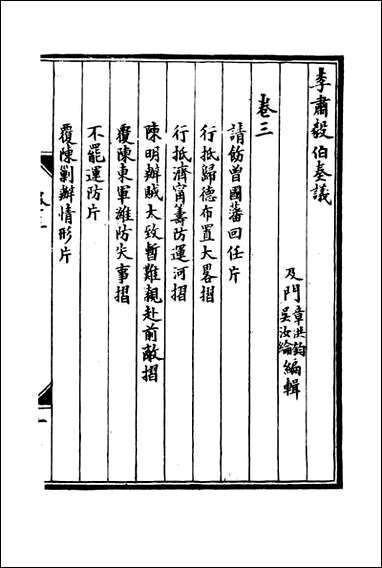 李肅毅伯奏議
及門章洪鈞吳汝綸編輯
卷三
請飭曾國藩回任片
行抵歸德布置大畧摺
行抵濟甯籌防運河摺
陳明辦賊大致暫難親赴前敵摺
覆陳東軍濰防失事摺
不罷運防片
覆陳剿辦情形片